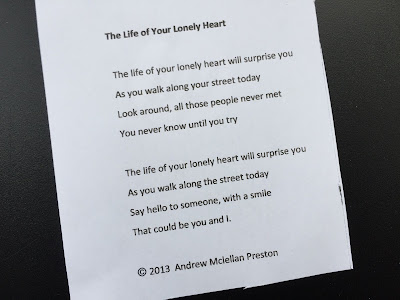 The Life of Your Lonely Heart
The life of your lonely heart will surprise you
As you walk along your street today
Look around, all those people never met
You never know until you try
The life of your lonely heart will surprise you
As you walk along the street today
Say hello to someone, with a smile
That could be you and i.
© 2013 Andrew Mclellan Preston